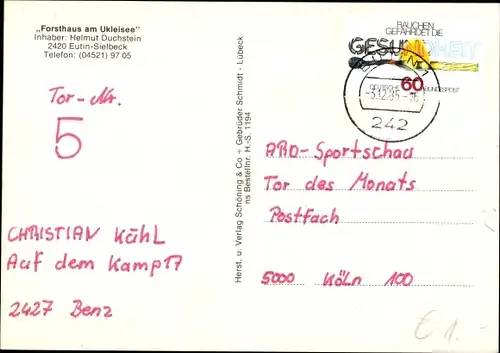 „Forsthaus am Ukleisee"
Inhaber: Helmut Duchstein
2420 Eutin-Sielbeck
Telefon: (04521) 97 05
Tor-Nr.
5
CHRISTIAN Kähl
Auf dem Kamp 17
2427 Benz
Herst. u. Verlag Schöning & Co + Gebrüder Schmidt - Lübeck
ns Bestellnr. H.-S. 1194
RAUCHEN
GEFÄHRDET DIE
GESUNDHEIT
60
DEUTSCHE BUNDESPOST
242
ARD-Sportschau
Tor des Monats
Postfach
5000 KÖLN 100
€ 1.-